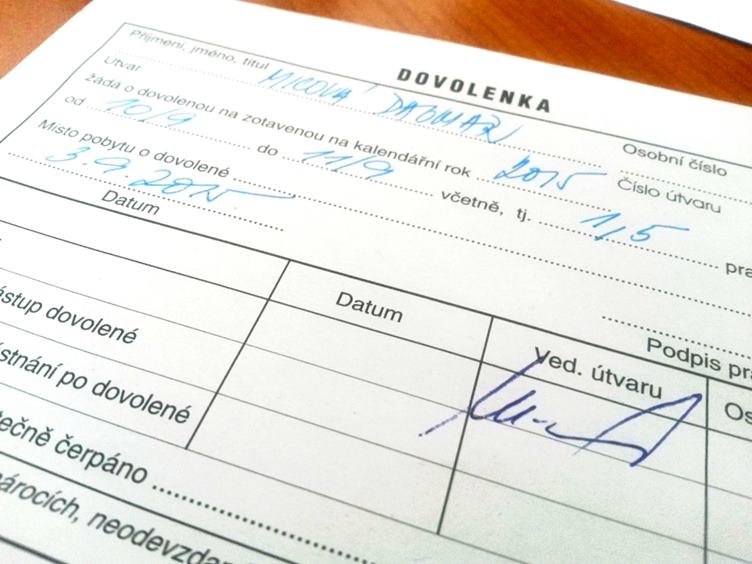 DOVOLENKA
Příjmení, jméno, titul MICOVÁ DAGMAR Osobní číslo
Útvar Číslo útvaru
žádá o dovolenou na zotavenou na kalendářní rok 2015
od 10/9 do 11/9 včetně, tj. 1,5
Místo pobytu o dovolené
3.9.2015
Datum Podpis
Datum Ved. útvaru
dovolené
po dovolené
čerpáno